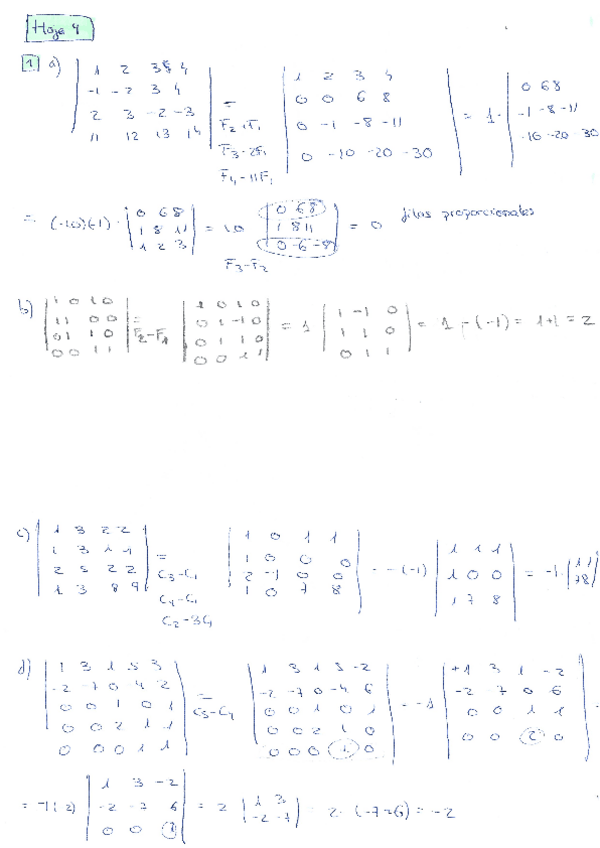 Hoja 4
1 a)
1 2 3 4
-1 -2 3 4
2 3 -2 -3
11 12 13 14
=
F2+F1
F3-2F1
F4-11F1
1 2 3 4
0 0 6 8
0 -1 -8 -11
0 -10 -20 -30
= 1·
0 6 8
-1 -8 -11
-10 -20 -30
= (-10)(-1) ·
0 6 8
1 8 11
1 2 3
= 10
F3-F2
0 6 8
1 8 11
0 -6 -8
= 0 filas proporcionales
b)
1 0 1 0
1 1 0 0
0 1 1 0
0 0 1 1
=
F2-F1
1 0 1 0
0 1 -1 0
0 1 1 0
0 0 1 1
= 1
1 -1 0
1 1 0
0 1 1
= 1 - (-1) = 1+1 = 2
c)
1 3 2 2
1 3 1 1
2 5 2 2
1 3 8 9
=
C3-C1
C4-C1
C2-3C1
1 0 1 1
1 0 0 0
2 -1 0 0
1 0 7 8
= -(-1)
1 1 1
1 0 0
1 7 8
= -1·
1 1
7 8
d)
1 3 1 5 3
-2 -7 0 4 2
0 0 1 0 1
0 0 2 1 1
0 0 0 1 1
=
C5-C4
1 3 1 5 -2
-2 -7 0 -4 6
0 0 1 0 1
0 0 2 1 0
0 0 0 1 0
= -1
+1 3 1 -2
-2 7 0 6
0 0 1 1
0 0 2 0
= -1(-2)
1 3 -2
-2 -7 6
0 0 1
= 2
1 3
-2 -7
= 2 · (-7+6) = -2